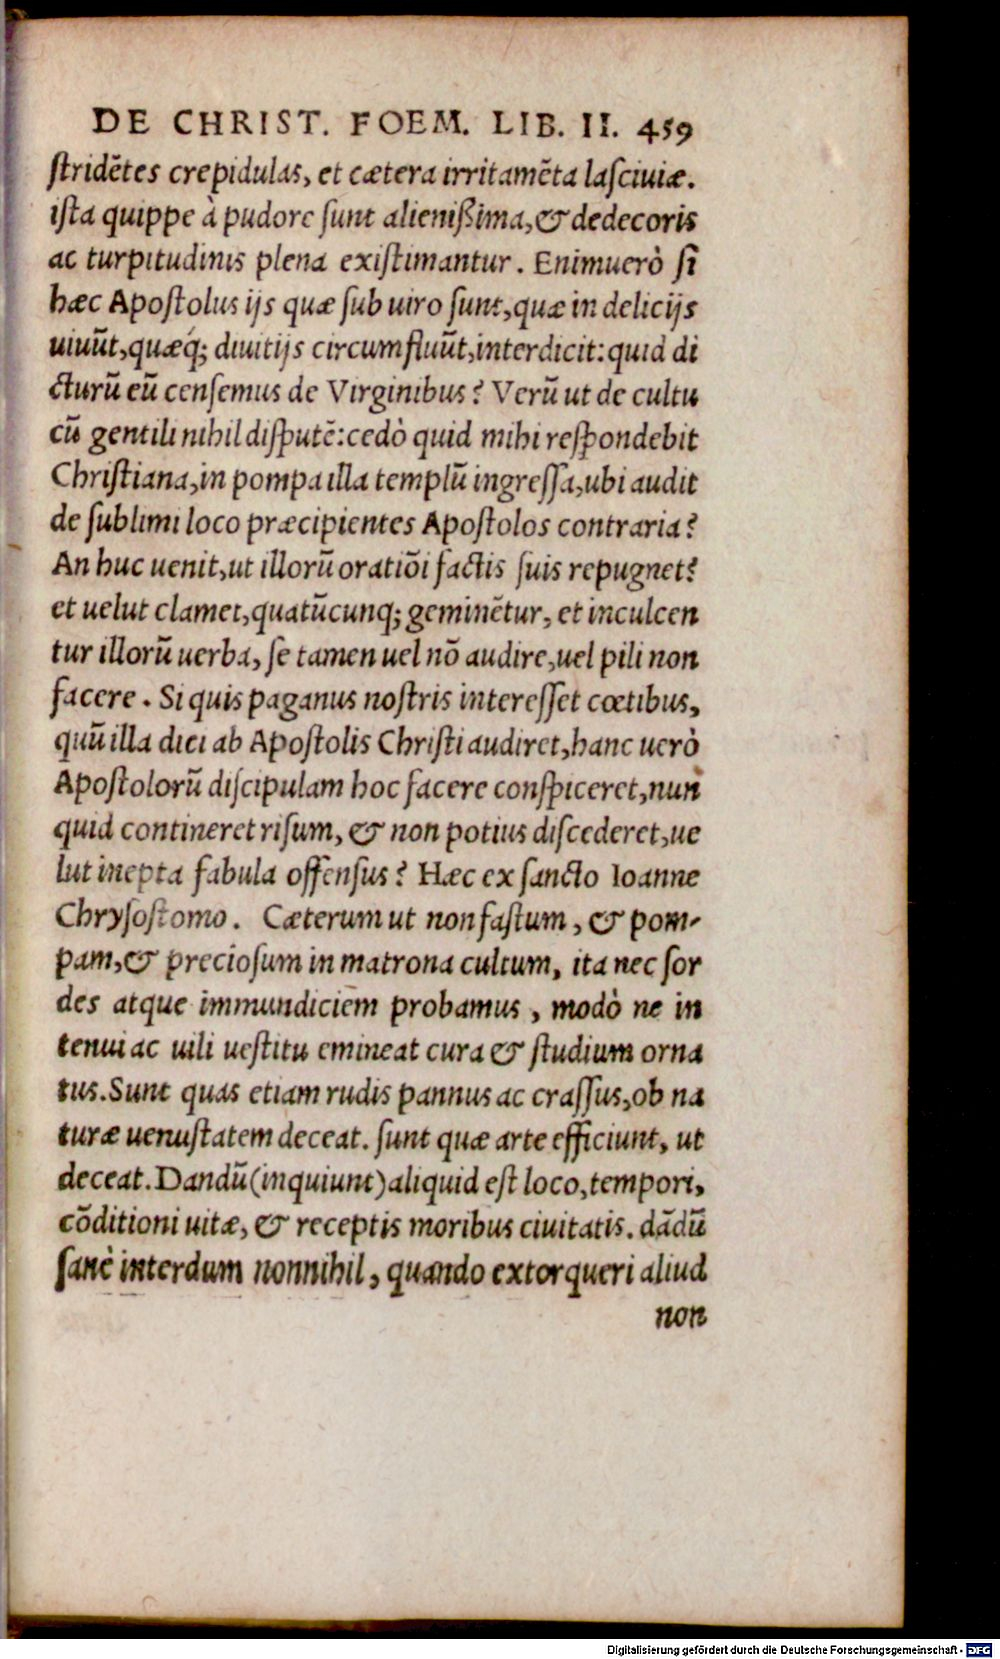 DE CHRIST. FOEM. LIB. II. 459
ſtridẽtes crepidulas, et cætera irritamẽta laſciuiæ.
iſta quippe à pudore ſunt alienißima, & dedecoris
ac turpitudinis plena exiſtimantur. Enimuerò ſi
hæc Apoſtolus ijs quæ ſub uiro ſunt, quæ in delicijs
uiuũt, quæq́; diuitijs circumfluũt, interdicit: quid di
cturũ eũ cenſemus de Virginibus? Verũ ut de cultu
cũ gentili nihil diſputẽ: cedò quid mihi reſpondebit
Chriſtiana, in pompa illa templũ ingreſſa, ubi audit
de ſublimi loco præcipientes Apoſtolos contraria?
An huc uenit, ut illorũ oratiõi factis ſuis repugnet?
et uelut clamet, quatũcunq; geminẽtur, et inculcen
tur illorũ uerba, ſe tamen uel nõ audire, uel pili non
facere. Si quis paganus noſtris intereſſet cœtibus,
quũ illa dici ab Apoſtolis Chriſti audiret, hanc uerò
Apoſtolorũ diſcipulam hoc facere conſpiceret, nun
quid contineret riſum, & non potius diſcederet, ue
lut inepta fabula offenſus? Hæc ex ſancto Ioanne
Chryſoſtomo. Cæterum ut non faſtum, & pom-
pam, & precioſum in matrona cultum, ita nec ſor
des atque immundiciem probamus, modò ne in
tenui ac uili ueſtitu emineat cura & ſtudium orna
tus. Sunt quas etiam rudis pannus ac craſſus, ob na
turæ uenuſtatem deceat. ſunt quæ arte efficiunt, ut
deceat. Dandũ (inquiunt) aliquid eſt loco, tempori,
cõditioni uitæ, & receptis moribus ciuitatis. dãdũ
ſanè interdum nonnihil, quando extorqueri aliud
non
Digitalisierung gefördert durch die Deutsche Forschungsgemeinschaft - DFG